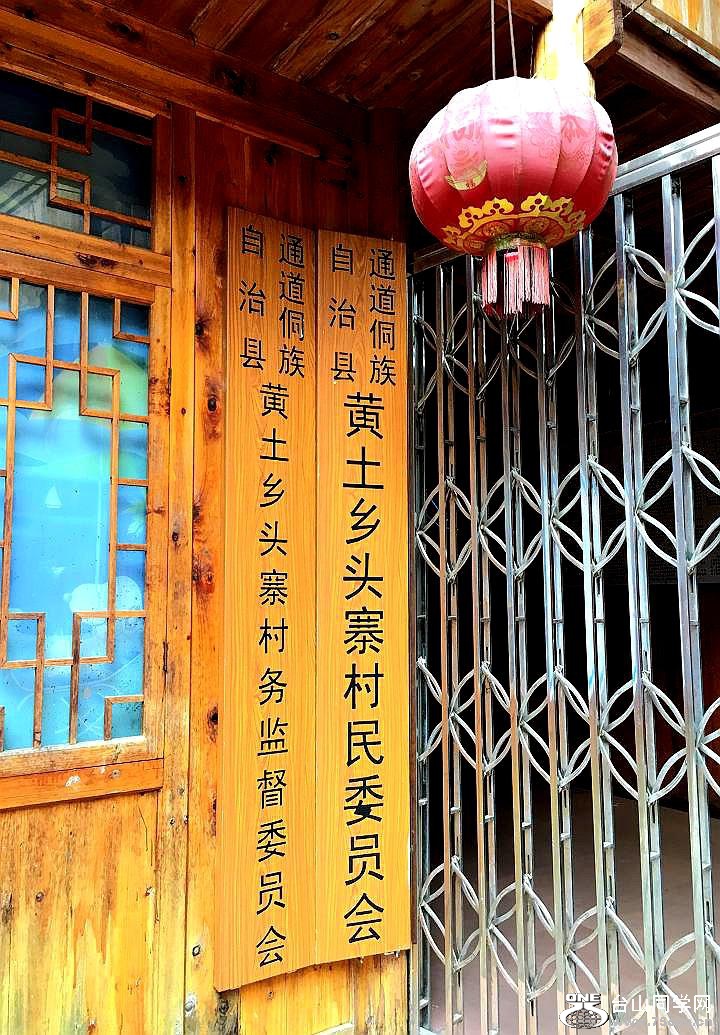 通道侗族
自治县
黄土乡头寨村民委员会
通道侗族
自治县
黄土乡头寨村务监督委员会
ONE
台山同学网